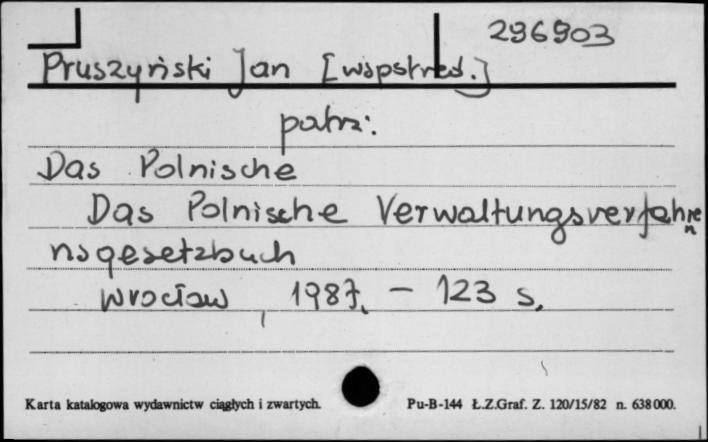 296903
Pruszyński Jan [wspstred.]
patrz:
Das Polnische
Das Polnische Verwaltungsverfahre
n
nsgesetzbuch
Wrocław, 1987. - 123 s.
Karta katalogowa wydawnictw ciągłych i zwartych.
Pu-B-144 Ł.Z.Graf. Z. 120/15/82 n. 638000.